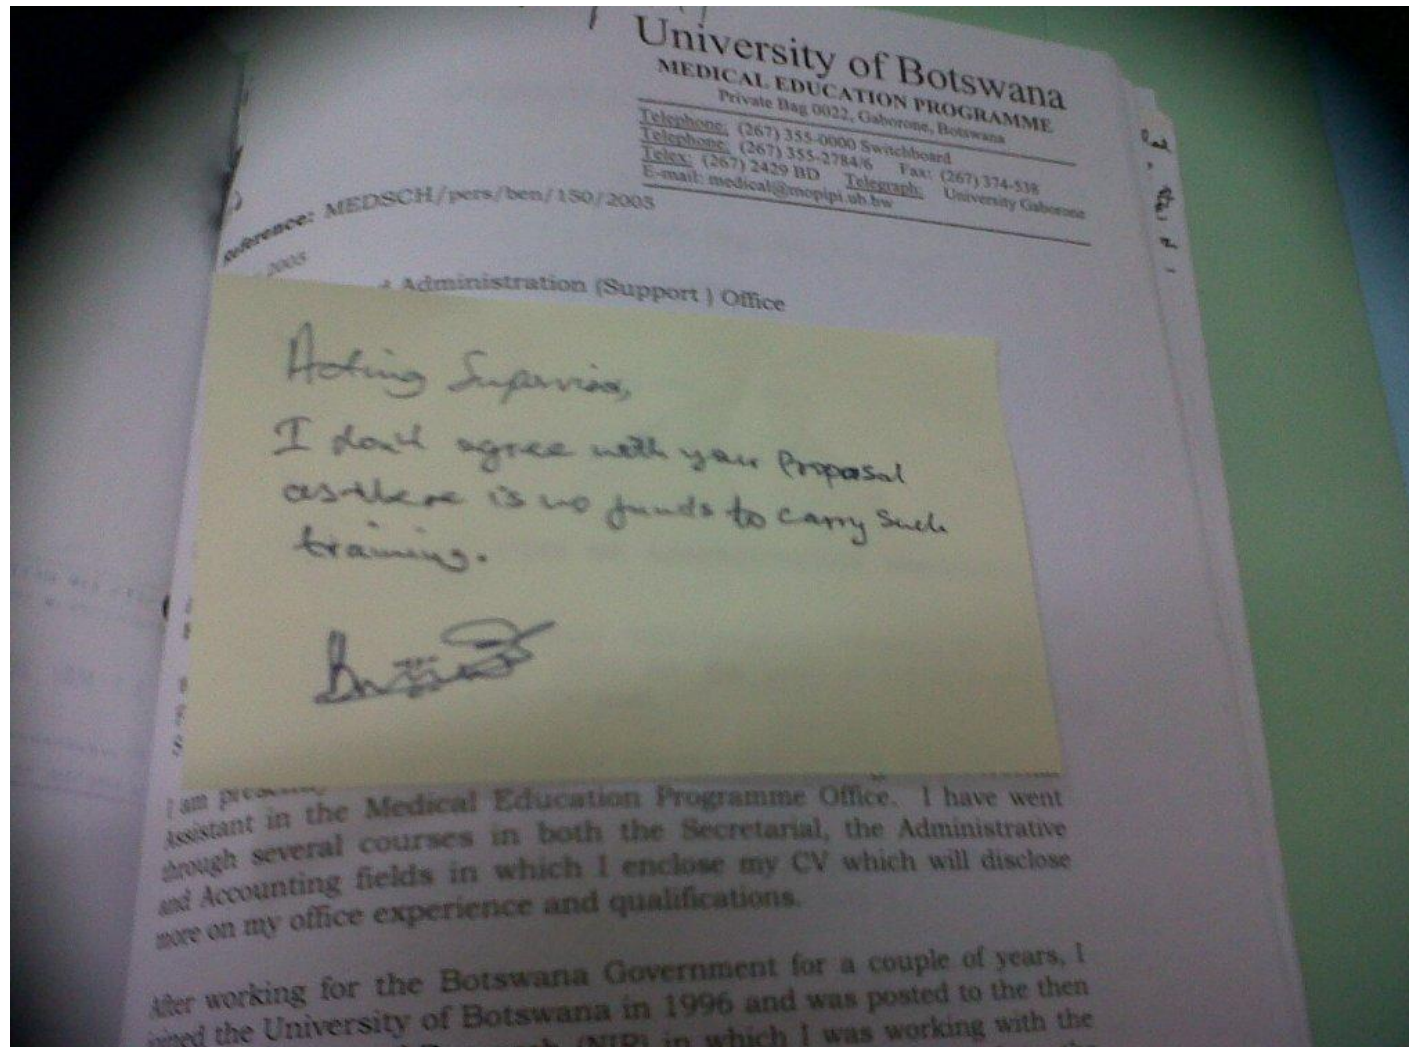 University of Botswana
MEDICAL EDUCATION PROGRAMME
Private Bag 0022, Gaborone, Botswana
Telephone: (267) 355-0000 Switchboard
Telephone: (267) 355-2784/6 Fax: (267) 374-538
Telex: (267) 2429 BD Telegraph: University Gaborone
E-mail: medical@mopipi.ub.bw
Reference: MEDSCH/pers/ben/150/2005
2005
Administration (Support ) Office
Acting Supervisor,
I don't agree with your Proposal
as there is no funds to carry such
training.
I am
Assistant in the Medical Education Programme Office. I have went
through several courses in both the Secretarial, the Administrative
and Accounting fields in which I enclose my CV which will disclose
more on my office experience and qualifications.
After working for the Botswana Government for a couple of years, I
joined the University of Botswana in 1996 and was posted to the then
(NIR) in which I was working with the